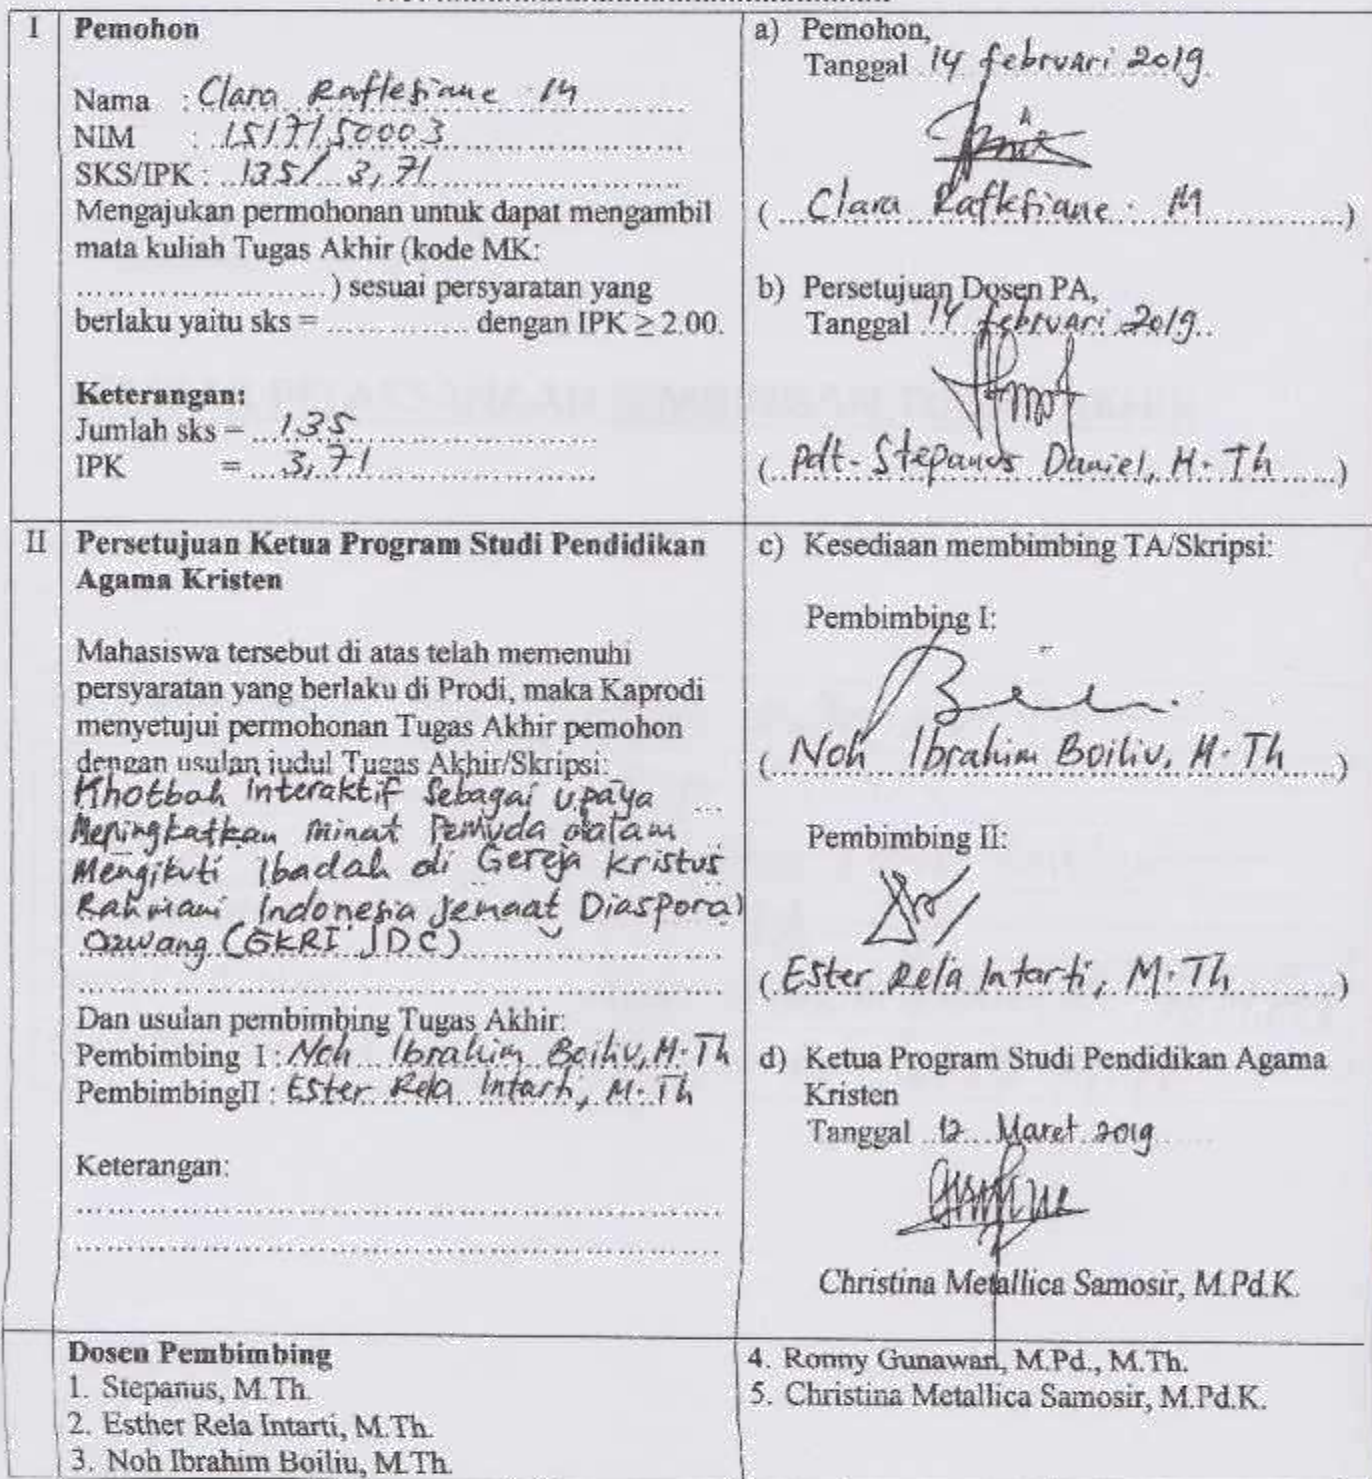 I
Pemohon
Nama : Clara Raflesiane M
NIM : 1517150003
SKS/IPK : 135/ 3,71
Mengajukan permohonan untuk dapat mengambil
mata kuliah Tugas Akhir (kode MK:
........................) sesuai persyaratan yang
berlaku yaitu sks = .............. dengan IPK ≥ 2.00.
Keterangan:
Jumlah sks = 135
IPK = 3,71
a) Pemohon,
Tanggal 14 februari 2019
( Clara Raflesiane M )
b) Persetujuan Dosen PA,
Tanggal 14 februari 2019
( Pdt. Stepanus Daniel, M.Th )
II
Persetujuan Ketua Program Studi Pendidikan
Agama Kristen
Mahasiswa tersebut di atas telah memenuhi
persyaratan yang berlaku di Prodi, maka Kaprodi
menyetujui permohonan Tugas Akhir pemohon
dengan usulan judul Tugas Akhir/Skripsi:
Khotbah Interaktif Sebagai Upaya
Meningkatkan minat Pemuda dalam
Mengikuti Ibadah di Gereja Kristus
Rahmani Indonesia Jemaat Diaspora
(GKRI JDC)
Dan usulan pembimbing Tugas Akhir:
Pembimbing I : Noh Ibrahim Boiliu, M.Th
PembimbingII : Ester Rela Intarti, M.Th
Keterangan:
c) Kesediaan membimbing TA/Skripsi:
Pembimbing I:
( Noh Ibrahim Boiliu, M.Th )
Pembimbing II:
( Ester Rela Intarti, M.Th )
d) Ketua Program Studi Pendidikan Agama
Kristen
Tanggal 12 Maret 2019
Christina Metallica Samosir, M.Pd.K.
Dosen Pembimbing
1. Stepanus, M.Th.
2. Esther Rela Intarti, M.Th.
3. Noh Ibrahim Boiliu, M.Th.
4. Ronny Gunawan, M.Pd., M.Th.
5. Christina Metallica Samosir, M.Pd.K.